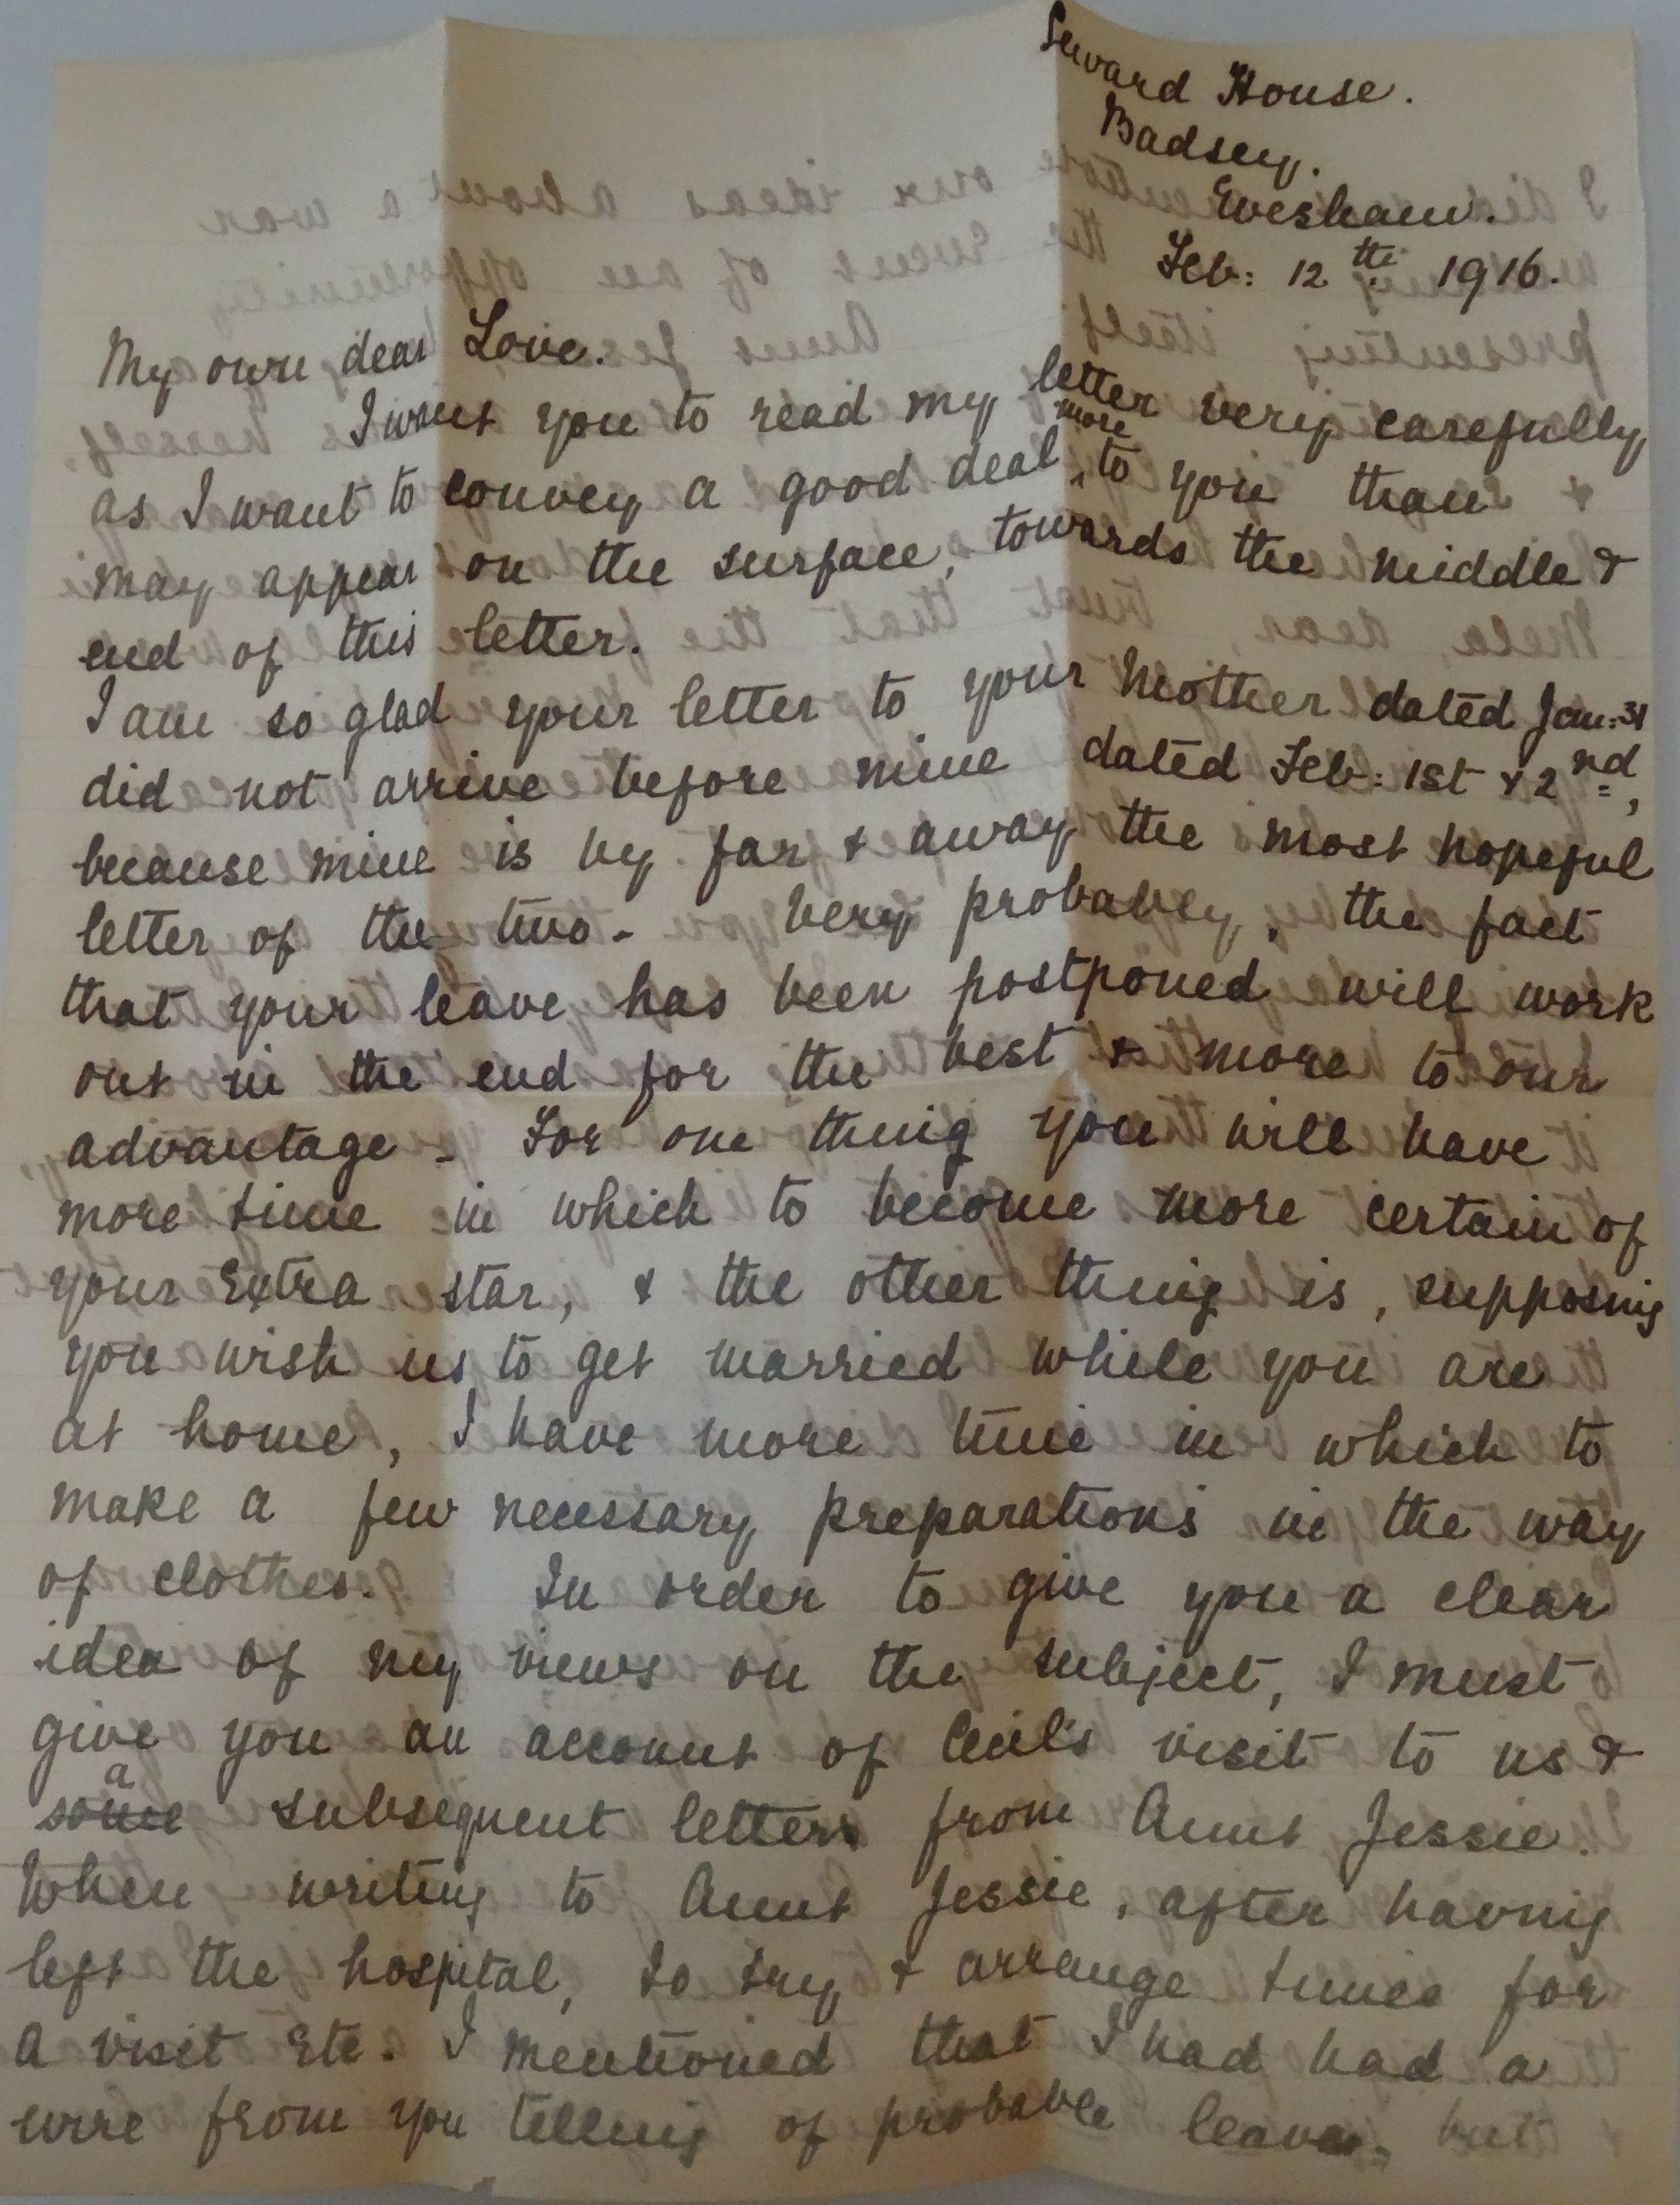 Seward House.
Badsey.
Evesham.
Feb: 12th 1916.
My own dear Love.
I want you to read my letter very carefully
as I want to convey a good deal more to you than
may appear on the surface, towards the middle &
end of this letter.
I am so glad your letter to your Mother dated Jan: 31
did not arrive before mine dated Feb: 1st & 2nd,
because mine is by far & away the most hopeful
letter of the two - Very probably, the fact
that your leave has been postponed will work
out in the end for the best & more to our
advantage - For one thing you will have
more time in which to become more certain of
your extra star, & the other thing is, supposing
you wish us to get married while you are
at home, I have more time in which to
make a few necessary preparations in the way
of clothes. In order to give you a clear
idea of my views on the subject, I must
give you an account of Cecil's visit to us &
some a subsequent letter from Aunt Jessie.
When writing to Aunt Jessie, after having
left the hospital, to try & arrange times for
a visit etc. I mentioned that I had had a
wire from you telling of probable leave, but